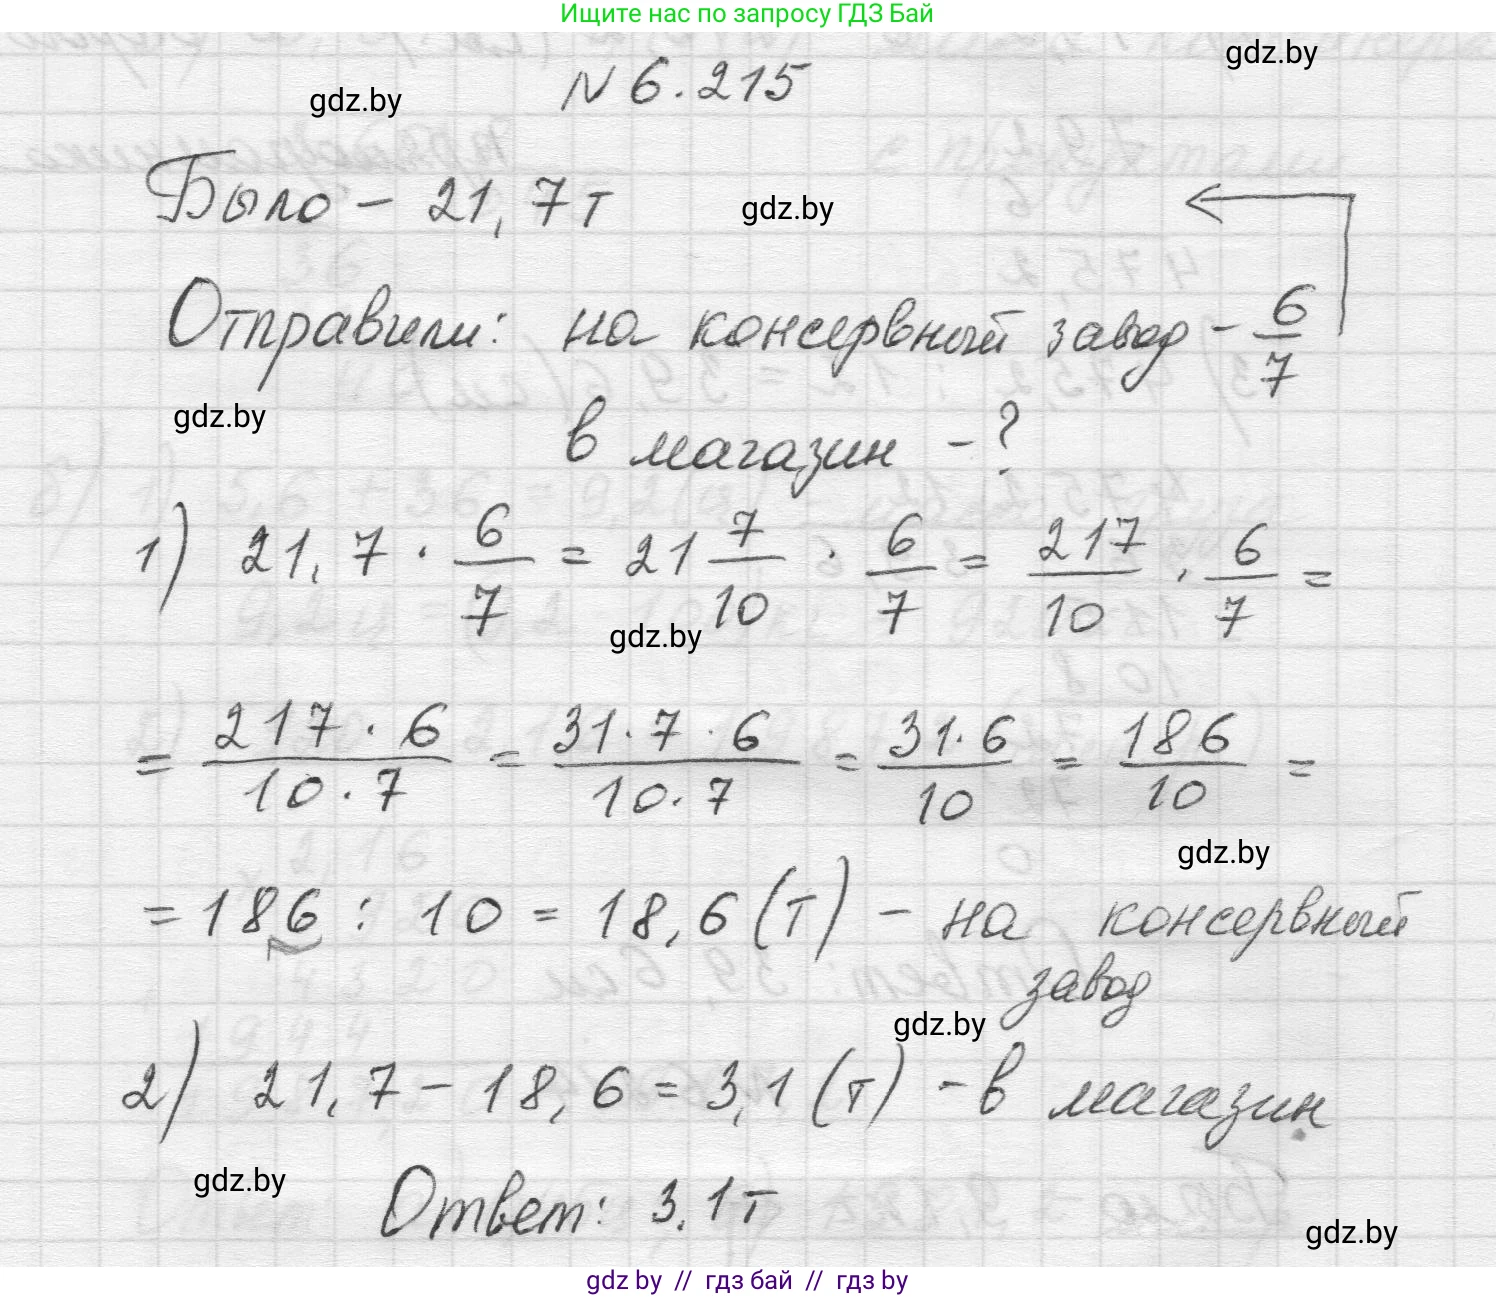 Ищите нас по запросу ГДЗ Бай
gdz.by
№ 6.215
gdz.by
Было – 21,7 т
gdz.by
Отправили: на консервный завод – 6/7
gdz.by
в магазин – ?
1) 21,7 · 6/7 = 21 7/10 · 6/7 = 217/10 · 6/7 =
gdz.by
= 217 · 6 / 10 · 7 = 31 · 7 · 6 / 10 · 7 = 31 · 6 / 10 = 186/10 =
gdz.by
= 186 : 10 = 18,6 (т) – на консервный
завод
gdz.by
2) 21,7 – 18,6 = 3,1 (т) – в магазин.
gdz.by
Ответ: 3,1 т
gdz.by
gdz by // гдз бай // гдз by